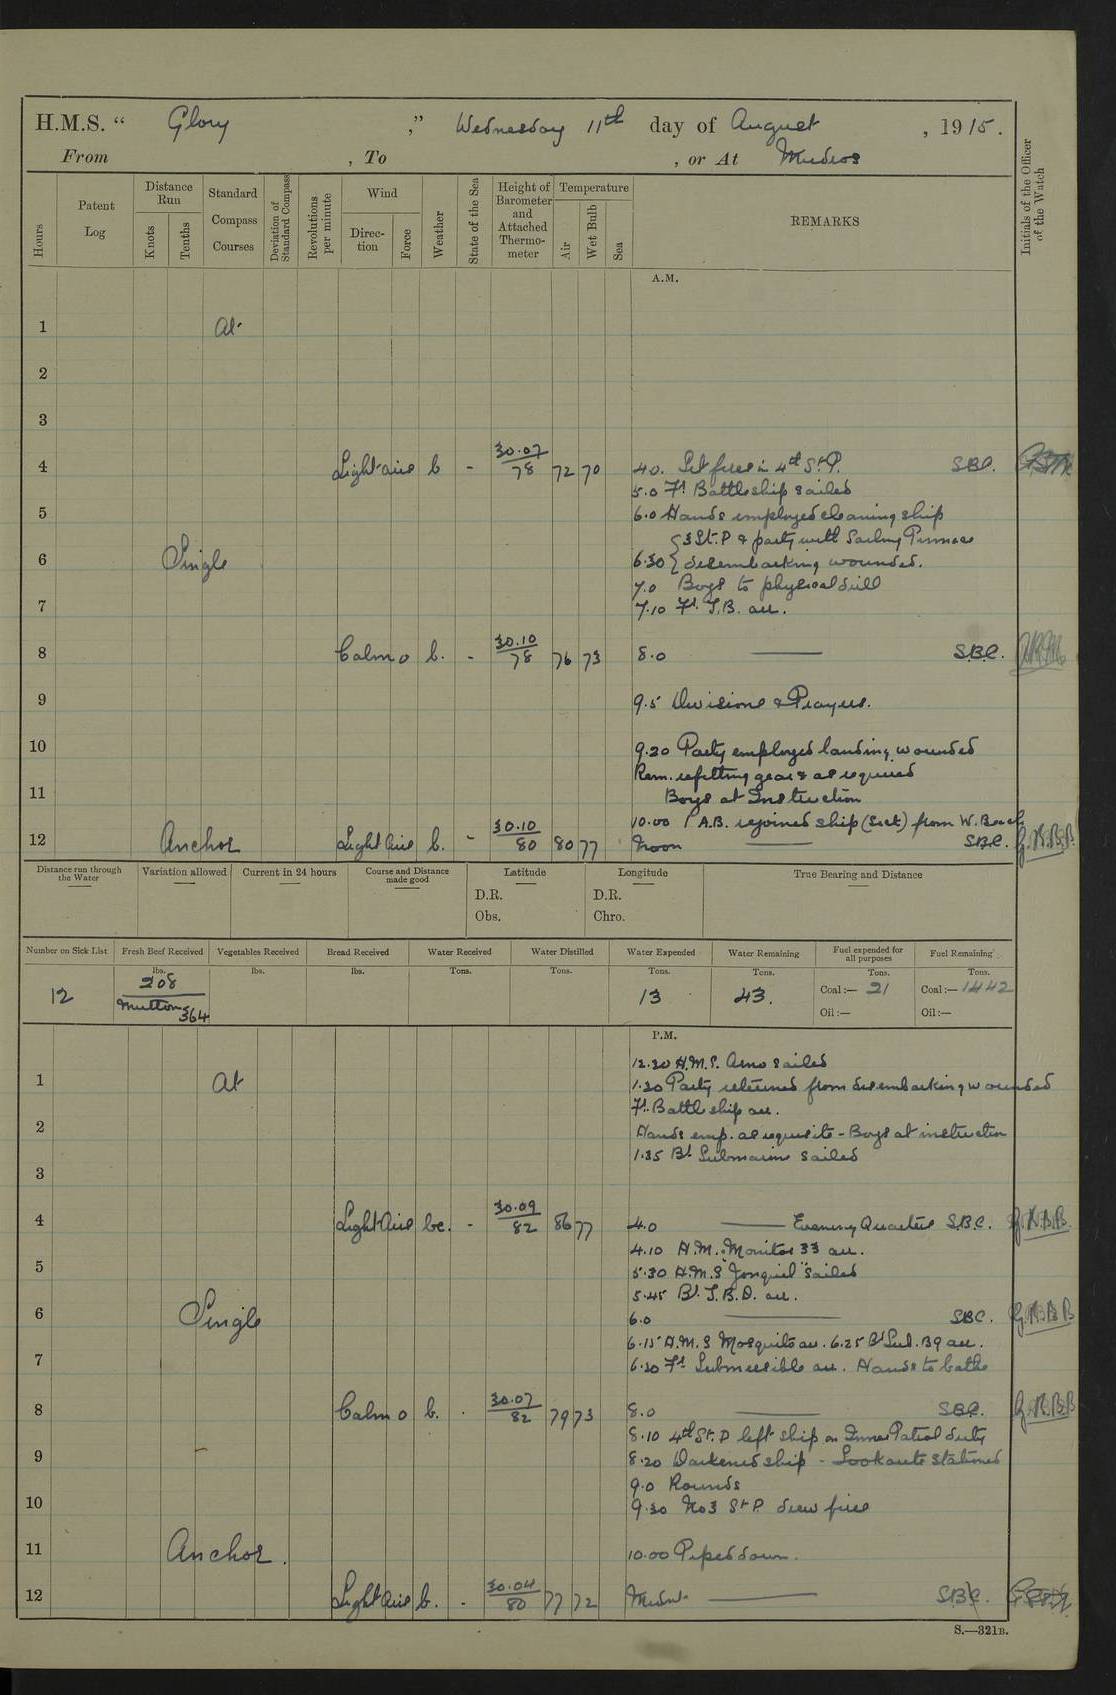 H.M.S. “ Glory ,” Wednesday 11th day of August , 1915.
From , To , or At Mudros
Hours
Patent Log
Distance Run
Knots
Tenths
Standard Compass Courses
Deviation of Standard Compass
Revolutions per minute
Wind
Direction
Force
Weather
State of the Sea
Height of Barometer and Attached Thermometer
Temperature
Air
Wet Bulb
Sea
REMARKS
Initials of the Officer of the Watch
A.M.
1 At
2
3
4 Light airs b - 30.07/78 72 70 4.0. Lit fires in 4th St. P. SBC.
5.0 Fr. Battleship sailed
5 6.0 Hands employed cleaning ship
{3 St. P & party with Sailing Pinnace
6 Single 6.30 { disembarking wounded.
7.0 Boys to physical drill
7 7.10 Fr. T.B. arr.
8 Calm 0 b. - 30.10/78 76 73 8.0 SBC.
9 9.5 Divisions & Prayers.
10 9.20 Party employed landing wounded
Rem. refitting gear & as required
11 Boys at Instruction
10.00 1 A.B. rejoined ship (Sick) from W. Beach
12 Anchor Light Airs b. - 30.10/80 80 77 Noon SBC. G.H.B.B.
Distance run through the Water
Variation allowed
Current in 24 hours
Course and Distance made good
Latitude
D.R.
Obs.
Longitude
D.R.
Chro.
True Bearing and Distance
Number on Sick List Fresh Beef Received Vegetables Received Bread Received Water Received Water Distilled Water Expended Water Remaining Fuel expended for all purposes Fuel Remaining
lbs. lbs. lbs. Tons. Tons. Tons. Tons. Tons. Tons.
12 208 Mutton 364 13 43. Coal:— 21 Coal:— 1442
Oil:— Oil:—
P.M.
12.30 H.M.S. Arno sailed
1 At 1.20 Party returned from disembarking wounded
Fr. Battleship arr.
2 Hands emp. as requisite - Boys at instruction
1.35 Br. Submarine sailed
3
4 Light Airs bc. - 30.09/82 86 77 4.0 Evening Quarters SBC. G.H.B.B.
4.10 H.M. Monitor 33 arr.
5 5.30 H.M.S "Jonquil" sailed
5.45 Br. T.B.D. arr.
6 Single 6.0 SBC. G.H.B.B
6.15 H.M.S Mosquito arr. 6.25 Br Sub. B9 arr.
7 6.30 Fr. Submersible arr. Hands to bathe
8 Calm 0 b. . 30.07/82 79 73 8.0 SBC. G.H.B.B
8.10 4th St. P left ship on Inner Patrol duty
9 8.20 Darkened ship - Lookouts stationed
9.0 Rounds
10 9.30 No 3 St P. drew fires
11 Anchor. 10.00 Piped down.
12 Light Airs b. - 30.04/80 77 72 Midnt SBC.
S.—321B.